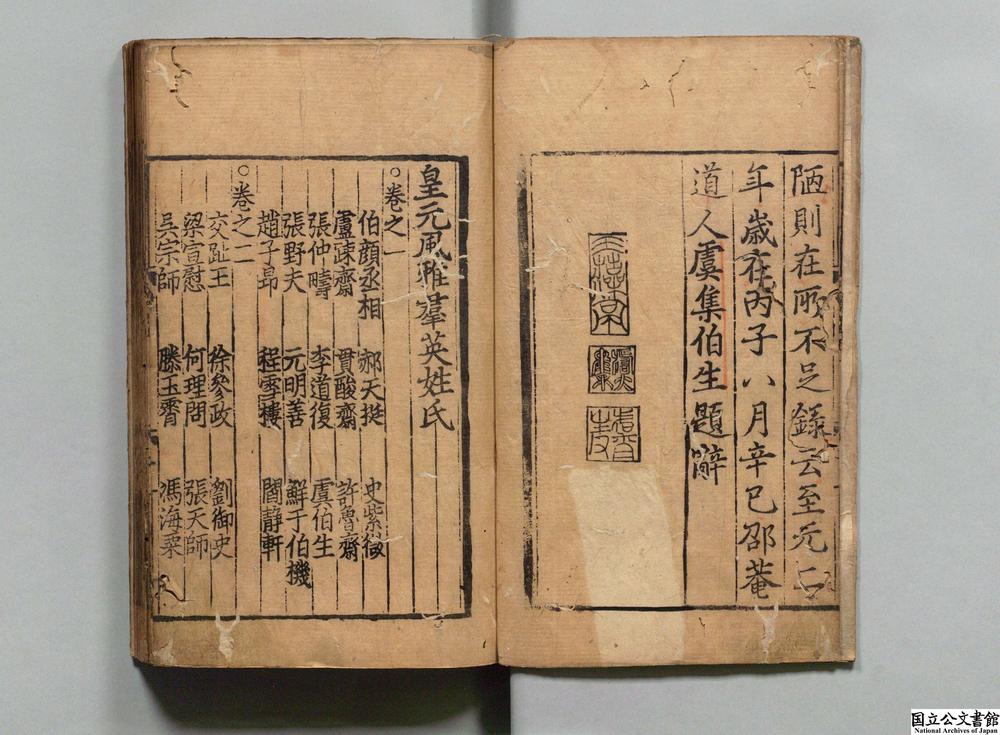 陋則在所不足錄云至元二
年歲在丙子八月辛巳邵菴
道人虞集伯生題辭
皇元風雅羣英姓氏
○卷之一
伯顏丞相 郝天挺 史紫微
盧疎齋 貫酸齋 許魯齋
張仲疇 李道復 虞伯生
張野夫 元明善 鮮于伯機
趙子昻 程雪樓 閻靜軒
○卷之二
交趾王 徐參政 劉御史
梁宣慰 何理問 張天師
吳宗師 滕玉霄 馮海粟
国立公文書館
National Archives of Japan